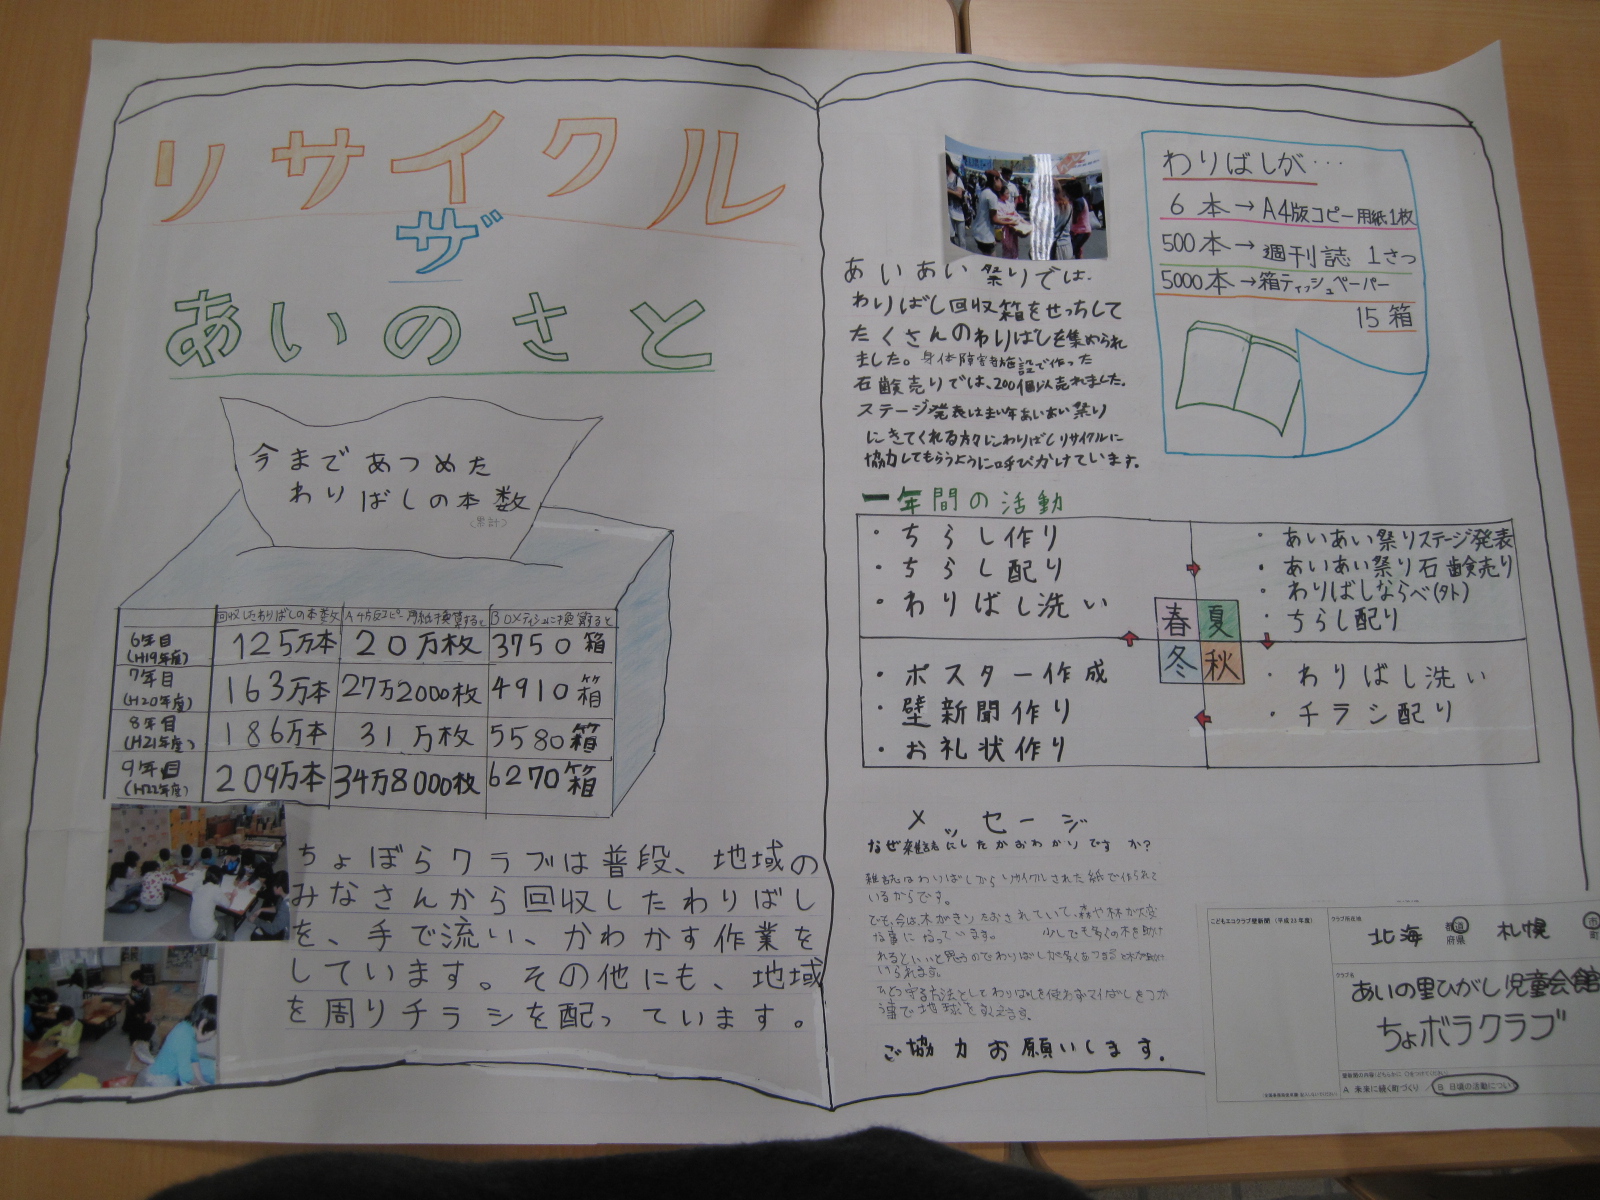 リサイクル
ザ
あいのさと
今まであつめた
わりばしの本数
(累計)
回収したわりばしの本数 A4版コピー用紙に換算すると BOXティシュに換算すると
6年目 125万本 20万枚 3750箱
(H19年度)
7年目 163万本 27万2000枚 4910箱
(H20年度)
8年目 186万本 31万枚 5580箱
(H21年度)
9年目 209万本 34万8000枚 6270箱
(H22年度)
ちょぼらクラブは普段、地域の
みなさんから回収したわりばし
を、手で流い、かわかす作業を
しています。その他にも、地域
を周りチラシを配っています。
あいあい祭りでは、
わりばし回収箱をせっちして
たくさんのわりばしを集められ
ました。身体障害者施設で作った
石鹸売りでは、200個以上売れました。
ステージ発表は毎年あいあい祭り
にきてくれる方々にわりばしリサイクルに
協力してもらうように呼びかけています。
わりばしが・・・
6本→A4版コピー用紙1枚
500本→週刊誌 1さつ
5000本→箱ティッシュペーパー
15箱
一年間の活動
・ちらし作り
・ちらし配り
・わりばし洗い
・あいあい祭りステージ発表
・あいあい祭り石鹸売り
・わりばしならべ(外)
・ちらし配り
春 夏
冬 秋
・ポスター作成
・壁新聞作り
・お礼状作り
・わりばし洗い
・チラシ配り
メッセージ
なぜ雑誌にしたかおわかりですか?
雑誌はわりばしからリサイクルされた紙で作られて
いるからです。
でも、今は、木がきりたおされていて、森や林が大変
な事になっています。 少しでも多くの木を助け
れるといいと思うのでわりばしが多くあつまると木が助け
いられます。
ひとつ守る方法としてわりばしを使わずマイばしをつか
う事で地球を救えます。
ご協力お願いします。
こどもエコクラブ壁新聞 (平成23年度)
クラブ所在地
北海 都道府県 札幌 市
町
クラブ名
あいの里ひがし児童会館
ちょボラクラブ
A 未来に続く町づくり / B 日頃の活動につい